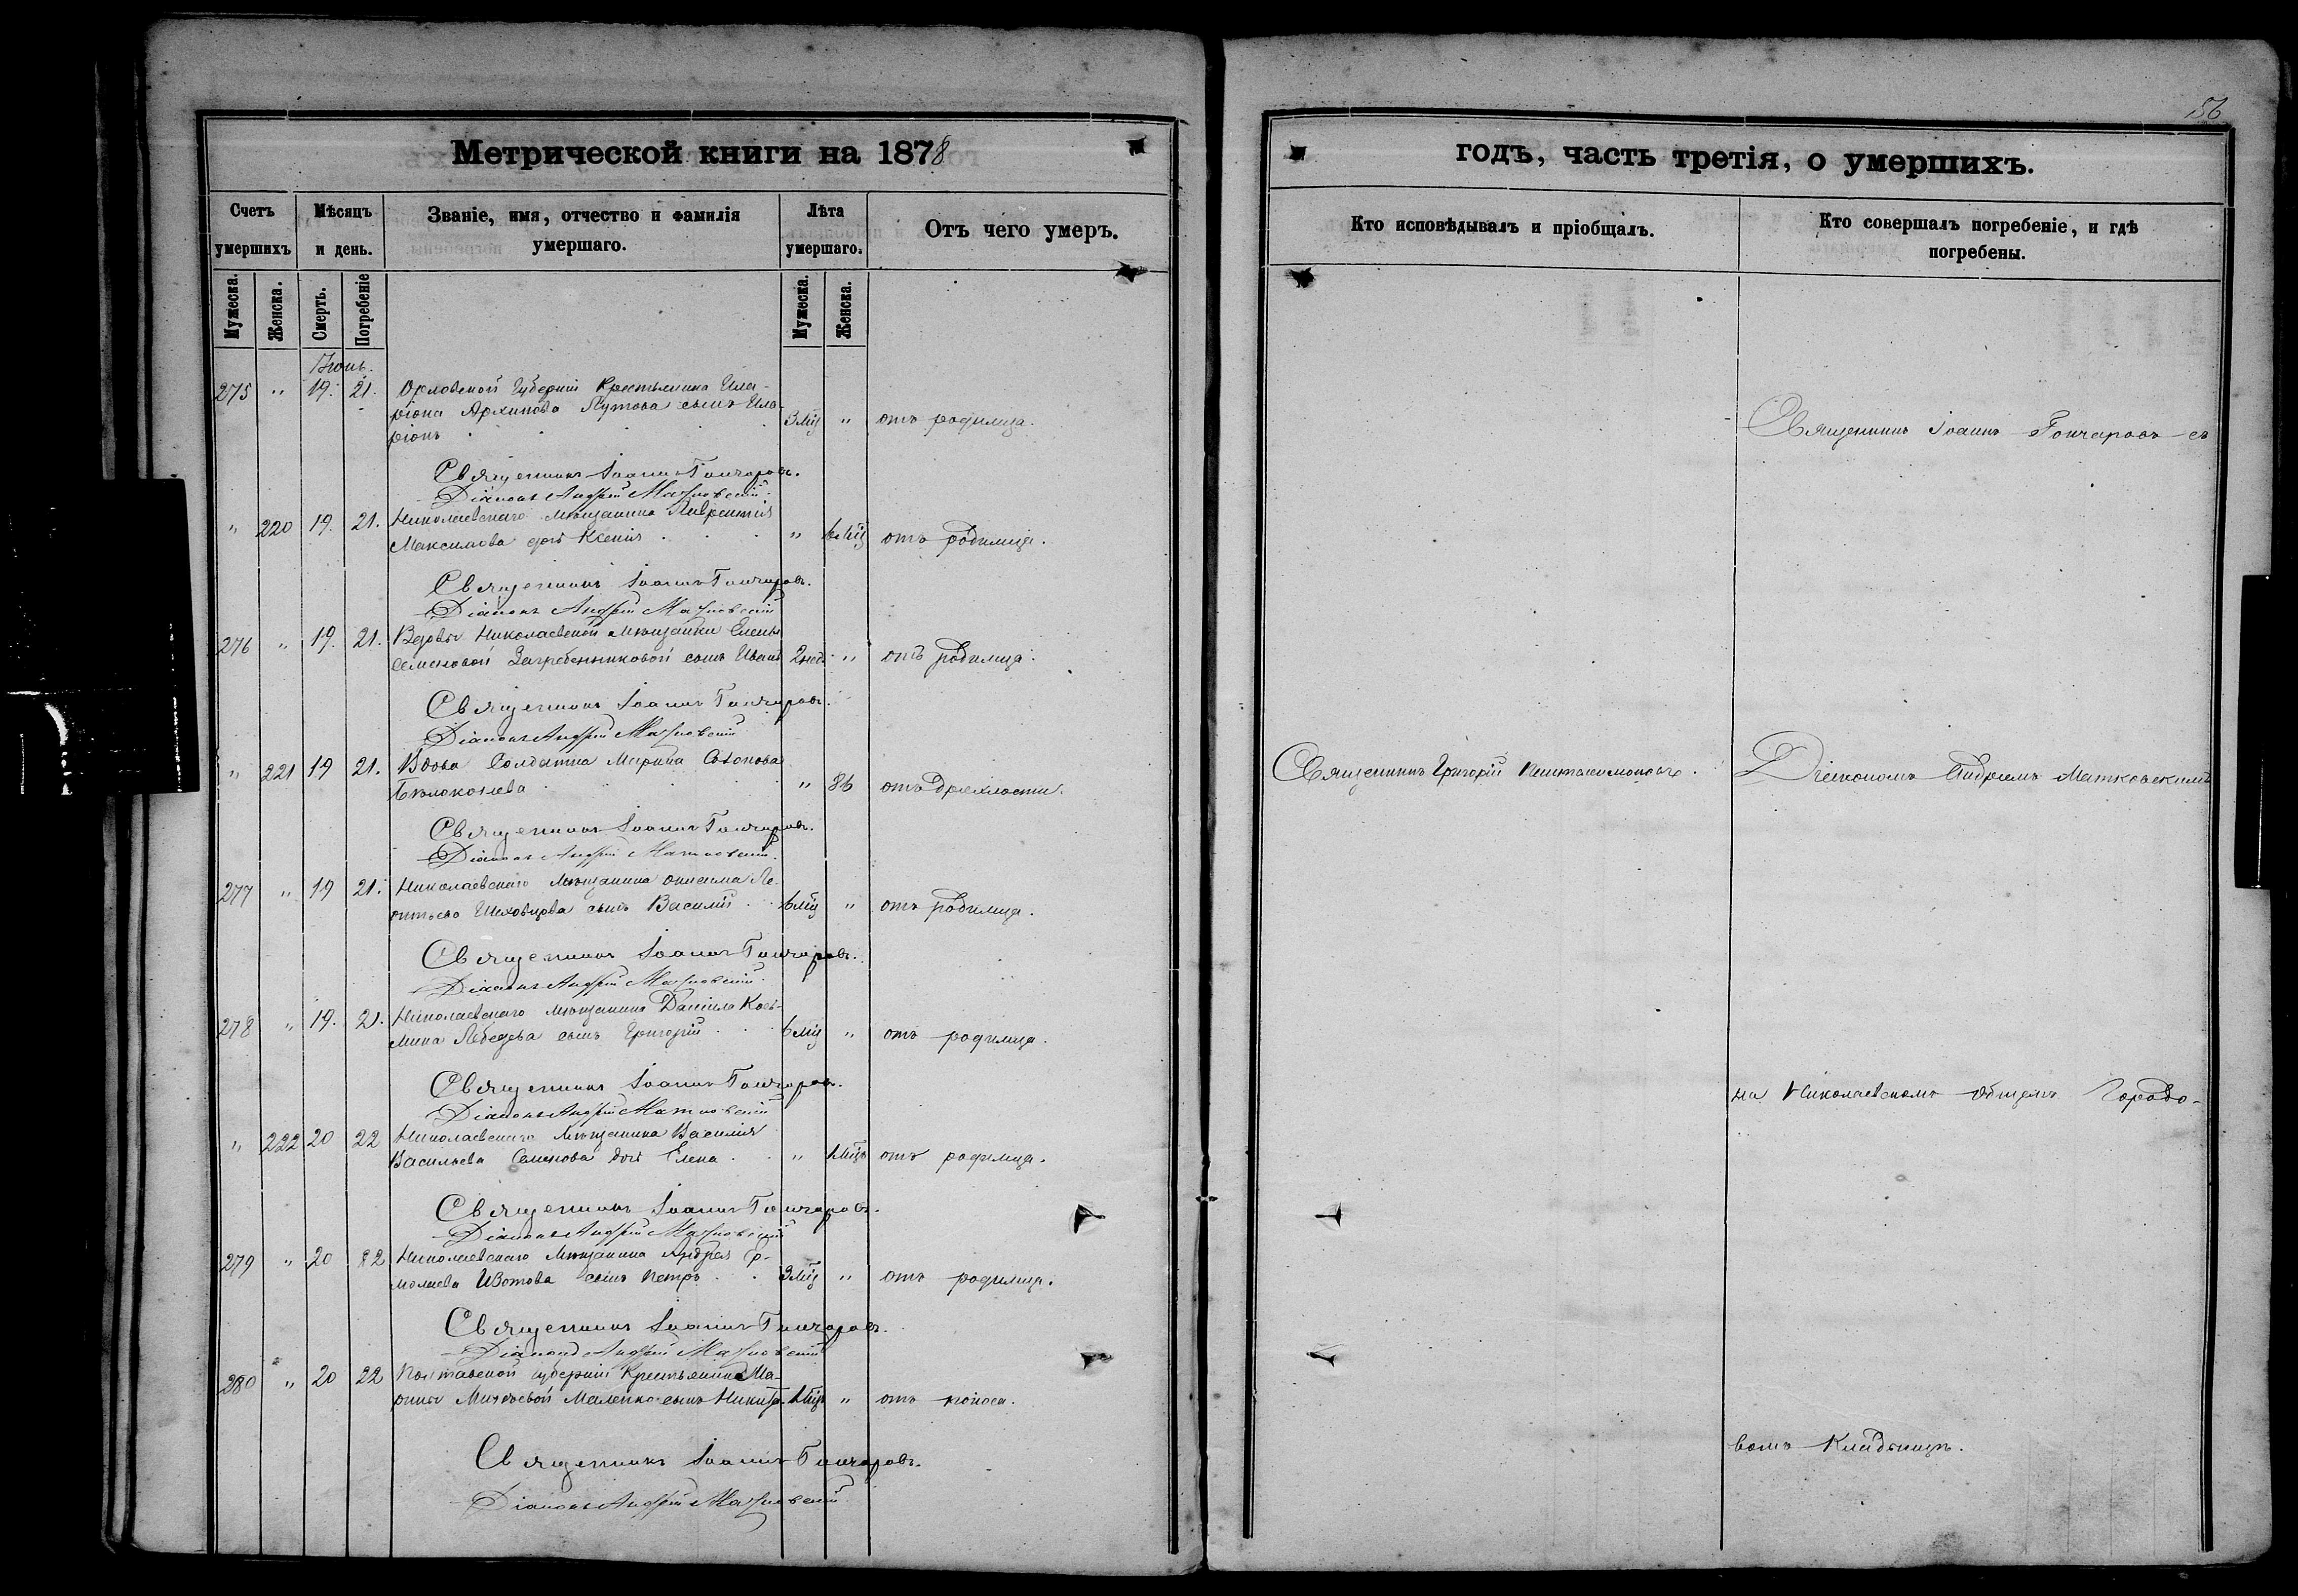 156
Метрической книги на 1878
годъ, часть третія, о умершихъ.
Счетъ умершихъ
Мѣсяцъ и день.
Званіе, имя, отчество и фамилія умершаго.
Лѣта умершаго.
Отъ чего умеръ.
Кто исповѣдывалъ и пріобщалъ.
Кто совершалъ погребеніе, и гдѣ погребены.
Мужеска. Женска. Смерть. Погребеніе Мужеска. Женска.
Іюнь.
275 " 19. 21. Орловской Губерніи Крестьянина Ила-
ріона Архипова сынъ Ила-
ріонъ 3 мц " отъ родимца.
Священникъ Іоаннъ Гончаровъ съ
Священникъ Іоаннъ Гончаровъ.
Діаконъ Андрей Матковскій.
" 220 19. 21. Николаевскаго мѣщанина Лаврентія
Максимова дочь Ксенія " 6 мц отъ родимца.
Священникъ Іоаннъ Гончаровъ.
Діаконъ Андрей Матковскій
276 " 19. 21. Вдовы Николаевской мѣщанки Елены
Семеновой Загребенниковой сынъ Иванъ 2 нед. " отъ родимца.
Священникъ Іоаннъ Гончаровъ.
Діаконъ Андрей Матковскій
" 221 19 21. Вдова Солдатка Марина
Бѣлокоnева " 86 отъ дряхлости.
Священникъ Григорій
Діакономъ Андреемъ Матковскимъ
Священникъ Іоаннъ Гончаровъ.
Діаконъ Андрей Матковскій.
277 " 19 21. Николаевскаго мѣщанина Онисима Ле-
онтьева Шеховцова сынъ Василій 6 мц " отъ родимца.
Священникъ Іоаннъ Гончаровъ.
Діаконъ Андрей Матковскій.
278 " 19. 21. Николаевскаго мѣщанина Даніила Кось-
мина Лебедева сынъ Григорій 6 мц " отъ родимца.
Священникъ Іоаннъ Гончаровъ.
Діаконъ Андрей Матковскій
на Николаевскомъ общемъ Городо-
" 222 20 22 Николаевскаго Мѣщанина Василія
Васильева Семенова дочь Елена " 1 мць отъ родимца.
Священникъ Іоаннъ Гончаровъ.
Діаконъ Андрей Матковскій
279 " 20 22 Николаевскаго Мѣщанина Андрея Ер-
молаева Изотова сынъ Петръ 3 мц " отъ родимца.
Священникъ Іоаннъ Гончаровъ.
Діаконъ Андрей Матковскій
280 " 20 22 Полтавской губерніи Крестьянки Ма-
рины сынъ Никита 1 мць " отъ поноса.
вомъ Кладбищѣ.
Священникъ Іоаннъ Гончаровъ.
Діаконъ Андрей Матковскій